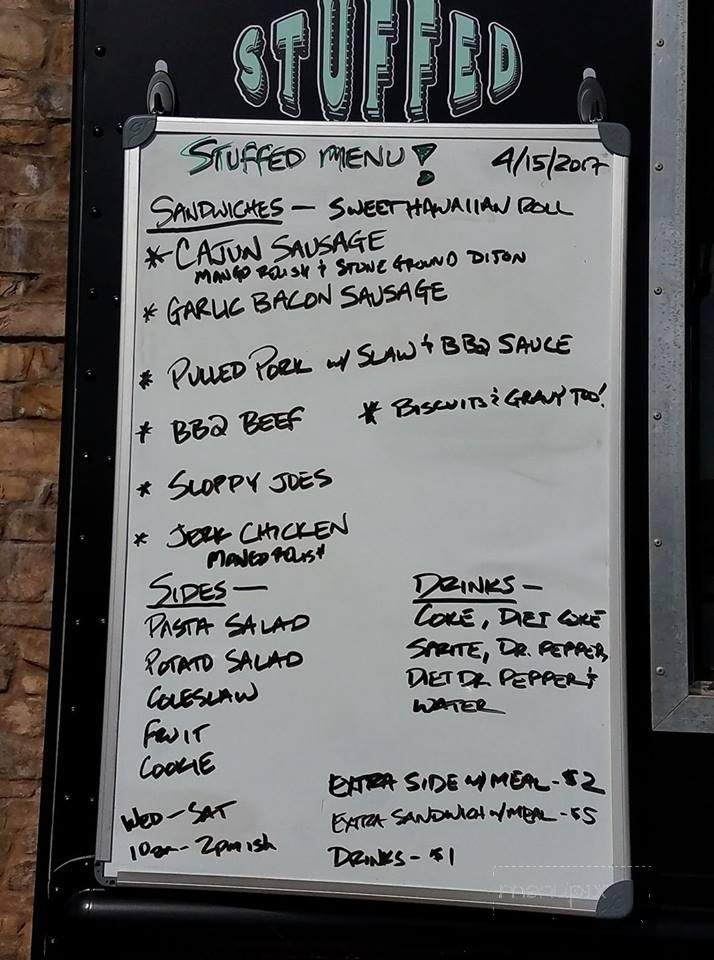 STUFFED
STUFFED MENU! 4/15/2017
SANDWICHES - SWEET HAWAIIAN ROLL
* CAJUN SAUSAGE
MANGO RELISH & STONE GROUND DIJON
* GARLIC BACON SAUSAGE
* PULLED PORK w/ SLAW & BBQ SAUCE
* BBQ BEEF
* BISCUITS & GRAVY TOO!
* SLOPPY JOES
* JERK CHICKEN
MANGO RELISH
SIDES -
PASTA SALAD
POTATO SALAD
COLESLAW
FRUIT
COOKIE
DRINKS -
COKE, DIET COKE
SPRITE, DR. PEPPER,
DIET DR PEPPER &
WATER
EXTRA SIDE w/ MEAL - $2
EXTRA SANDWICH w/ MEAL - $5
DRINKS - $1
WED - SAT
10am - 2pmish
menupix